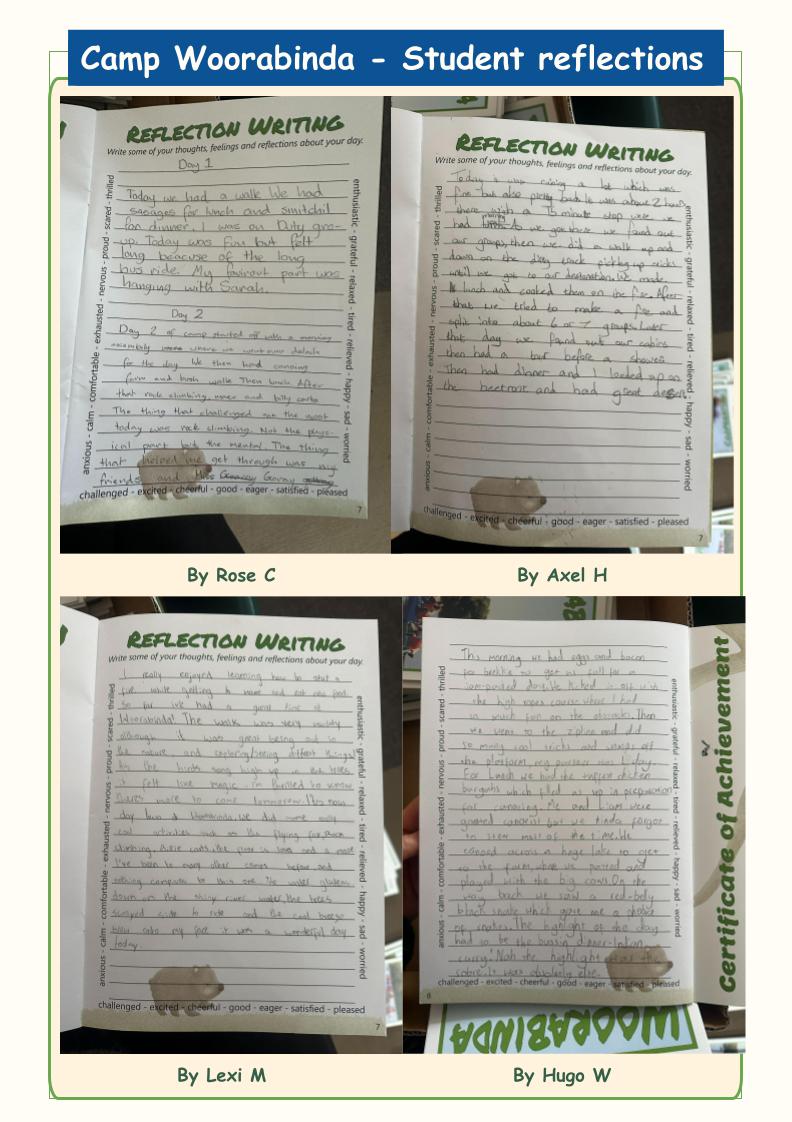 Camp Woorabinda - Student reflections
REFLECTION WRITING
Write some of your thoughts, feelings and reflections about your day.
Day 1
Today we had a walk We had
sasages for lunch and snitchil
for dinner. I was on Duty gro-
up. Today was Fun but felt
long beacuse of the long
bus ride. My faviourt part was
hanging with Sarah.
Day 2
Day 2 of camp started off with a morning
assembly where we went over details
for the day. We then had canoing
farm and bush walk Then lunch After
that rock climbing, and billy carts
The thing that challenged me the most
today was rock climbing. Not the phys-
ical part but the mental. The thing
that helped me get through was my
friends and Miss
anxious - calm - comfortable - exhausted - nervous - proud - scared - thrilled
enthusiastic - grateful - relaxed - tired - relieved - happy - sad - worried
challenged - excited - cheerful - good - eager - satisfied - pleased
7
By Rose C
REFLECTION WRITING
Write some of your thoughts, feelings and reflections about your day.
Today it was raining a lot which was
fine but also pretty bad. It was about 2 hours
there with a 15 minute stop were we
had we got here we found out
our groups, then we did a walk up and
down on the dirt track picking up sticks
until we got to our destonation. We made
lunch and cooked them on the fire. After
that we tried to make a fire and
split into about 6 or 7 groups. Later
that day we found out our cabins
then had a tour before a shower.
Then had dinner and I loaded up on
the beetroot and had great
anxious - calm - comfortable - exhausted - nervous - proud - scared - thrilled
enthusiastic - grateful - relaxed - tired - relieved - happy - sad - worried
challenged - excited - cheerful - good - eager - satisfied - pleased
7
By Axel H
REFLECTION WRITING
Write some of your thoughts, feelings and reflections about your day.
I really enjoyed learning how to start a
fire while getting to make and eat our food
so far we had a great time at
Woorabinda! The walk was very
although it was great being out in
the nature, and exploring/seeing different things!
the birds sang high up in the trees
it felt like magic. I'm thrilled to know
theres more to come tomorrow. It's now
day two at Woorabinda. We did some really
cool activities such as the flying fox, rock
climbing, billie carts, the
I've been to many other camps before and
nothing compares to this one the water glistens
down on the shiny river water, the trees
swayed side to side and the cool breeze
blew onto my face it was a wonderful day
today.
anxious - calm - comfortable - exhausted - nervous - proud - scared - thrilled
enthusiastic - grateful - relaxed - tired - relieved - happy - sad - worried
challenged - excited - cheerful - good - eager - satisfied - pleased
7
By Lexi M
This morning we had eggs and bacon
for brekkie to get us full for a
jam-packed day. We kicked it off with
the high ropes course where I had
so much fun on the obstacles. Then
we went to the zipline and did
so many cool tricks and jumps off
the platform, my partner was
For Lunch we had the chicken
burgers which filled us up in preparation
for canoeing. Me and Liam were
canoeist but we kinda forgor
to steer most of the time. We
canoed across a huge lake to get
to the farm, where we patted and
played with the big cows. On the
way back we saw a red-belly
black snake which gave me a phobia
of snakes. The highlight of the day
had to be the bussin dinner - Indian
curry! Nah the highlight was the
else.
anxious - calm - comfortable - exhausted - nervous - proud - scared - thrilled
enthusiastic - grateful - relaxed - tired - relieved - happy - sad - worried
challenged - excited - cheerful - good - eager - satisfied - pleased
8
Certificate of Achievement
WOORABINDA
By Hugo W